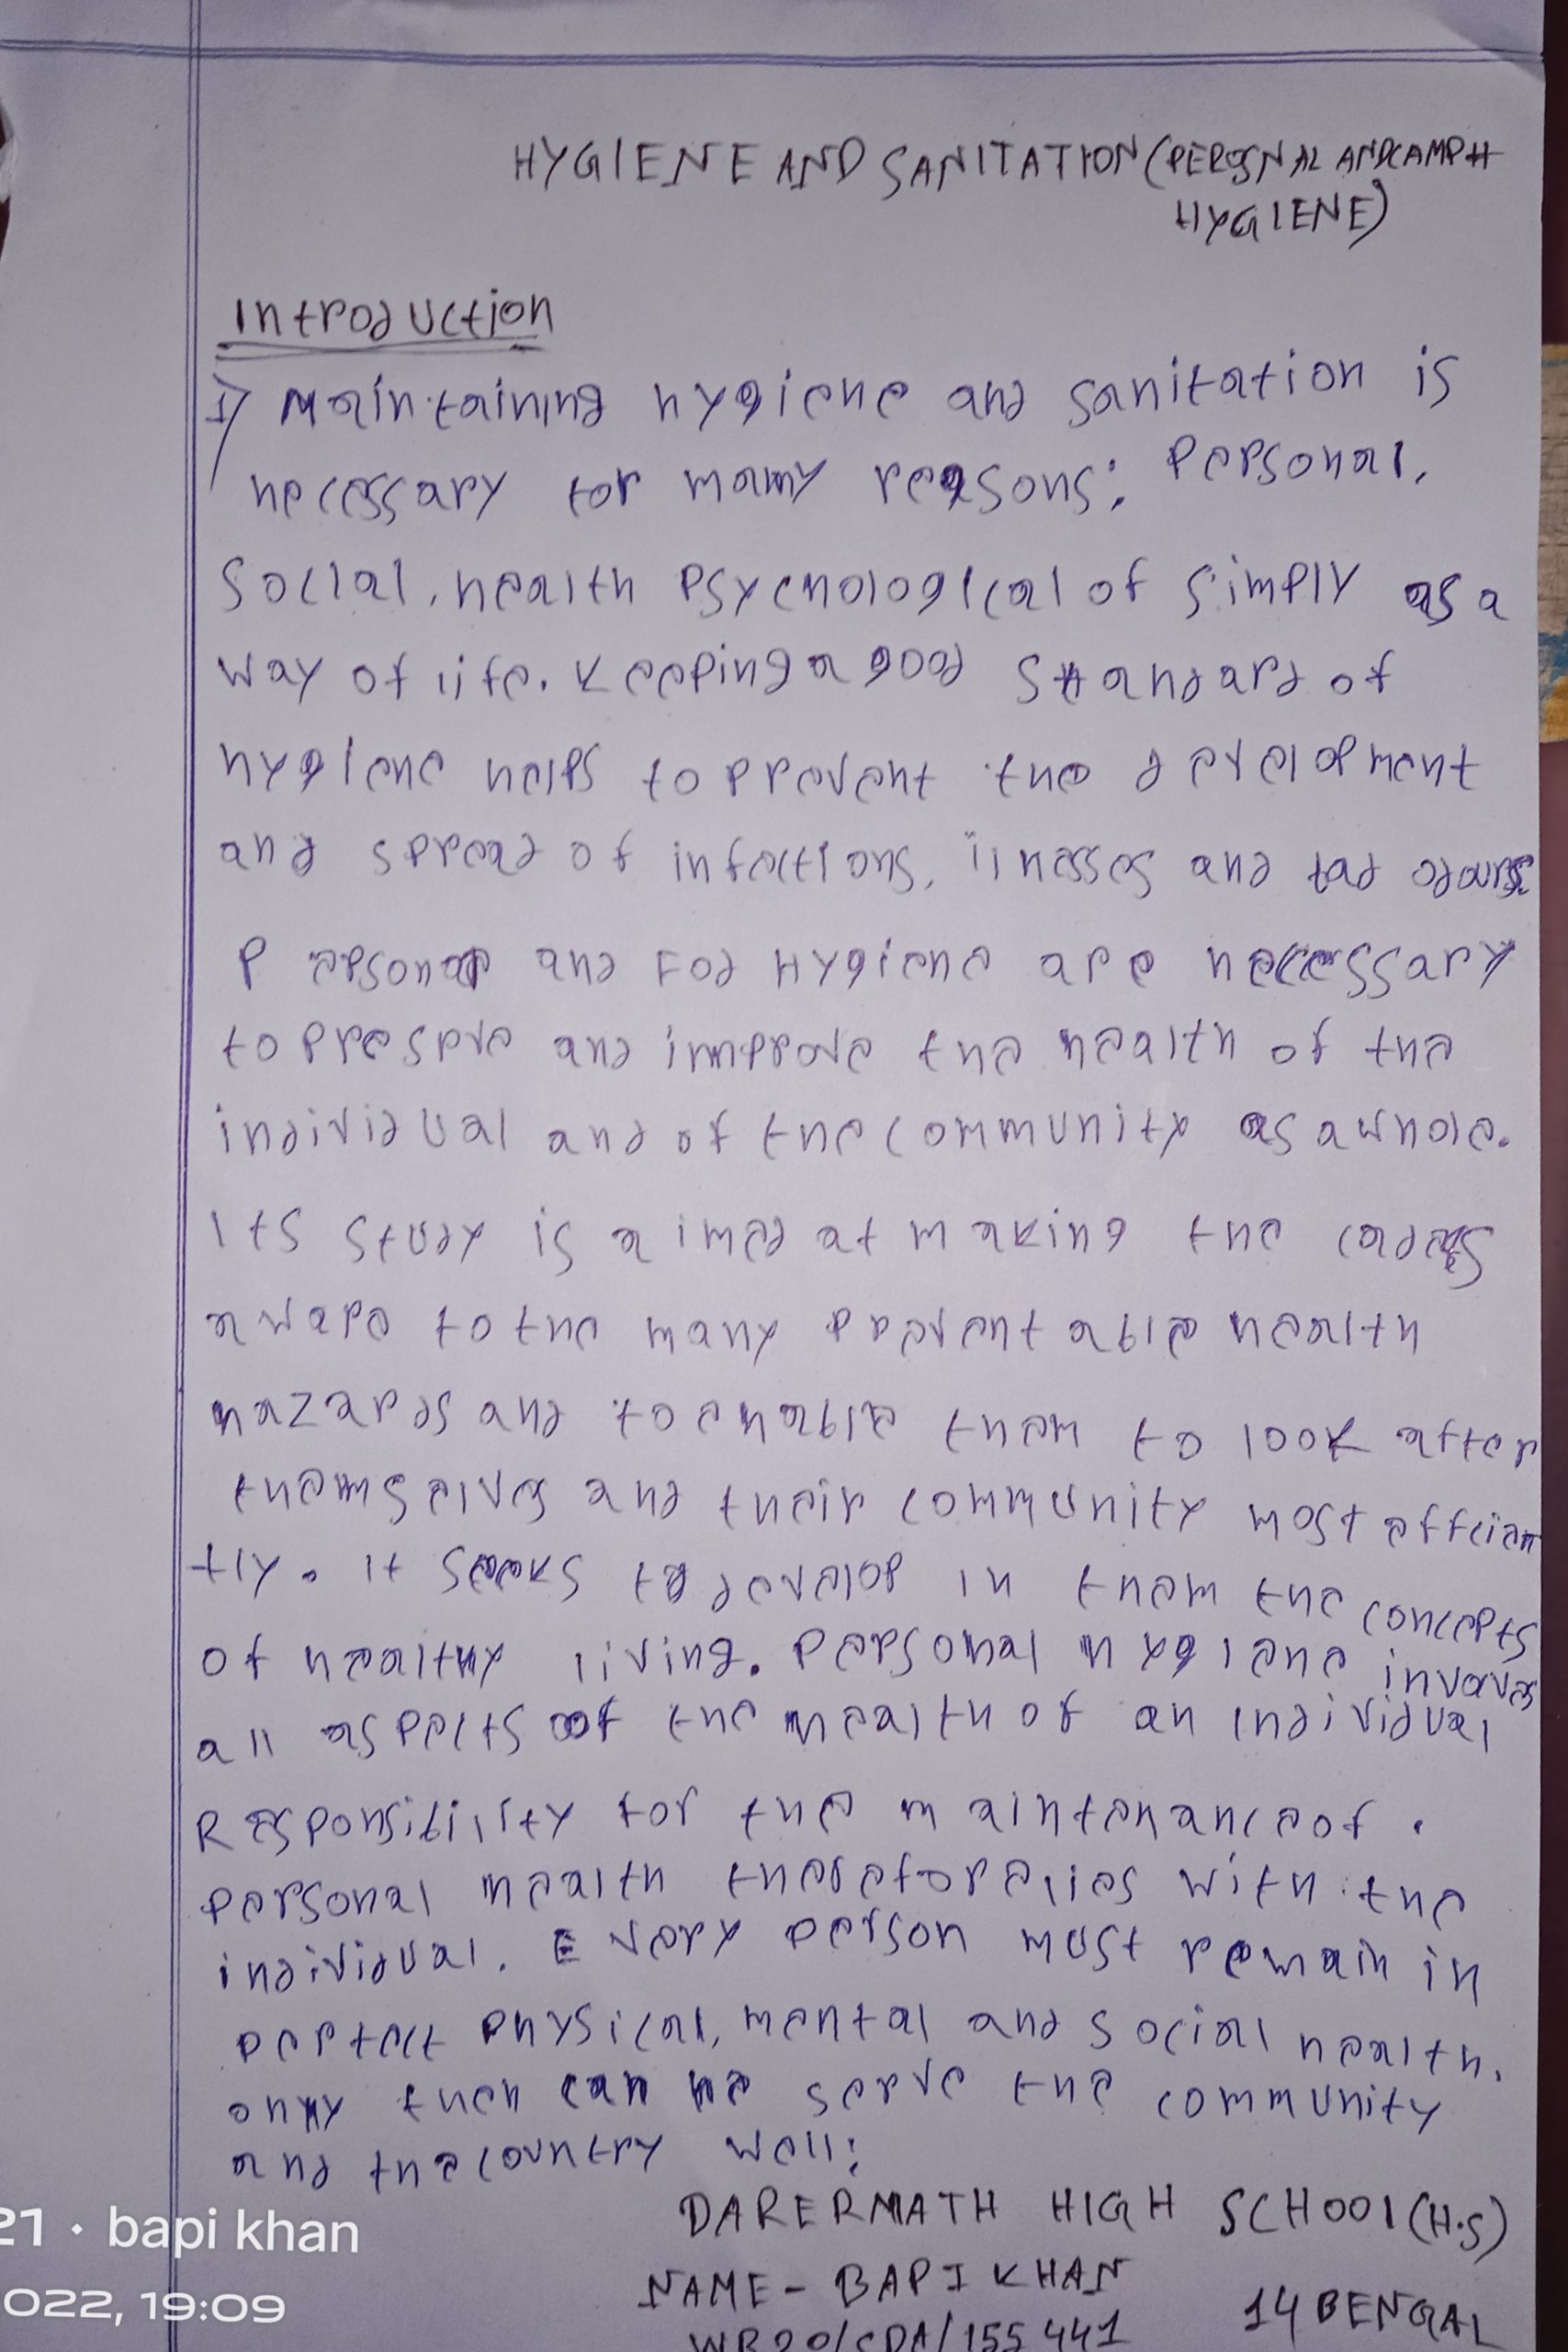 HYGIENE AND SANITATION (PEROSNAL AND CAMP H
HYGIENE)
Introduction
1) Maintaining hygiene and sanitation is
necessary for many reasons: Personal,
Social, health Psychological of simply as a
way of life. Keeping a good standard of
hygiene helps to prevent the development
and spread of infections, illnesses and bad odours.
Personal and Fod Hygiene are necessary
to preserve and improve the health of the
individual and of the community as a whole.
Its study is aimed at making the cadets
aware to the many preventable health
hazards and to enable them to look after
themselves and their community most efficien
tly. It seeks to develop in them the concepts
of healthy living. Personal hygiene invoves
all aspects of the health of an individual
Responsibility for the maintenance of.
personal health therefore lies with the
individual. Every person must remain in
perfect physical, mental and social health.
only then can he serve the community
and the country well:
DARERMATH HIGH SCHOOl (H.S)
NAME - BAPI KHAN
14 BENGAL
WB20/SDA/155441
21 · bapi khan
022, 19:09